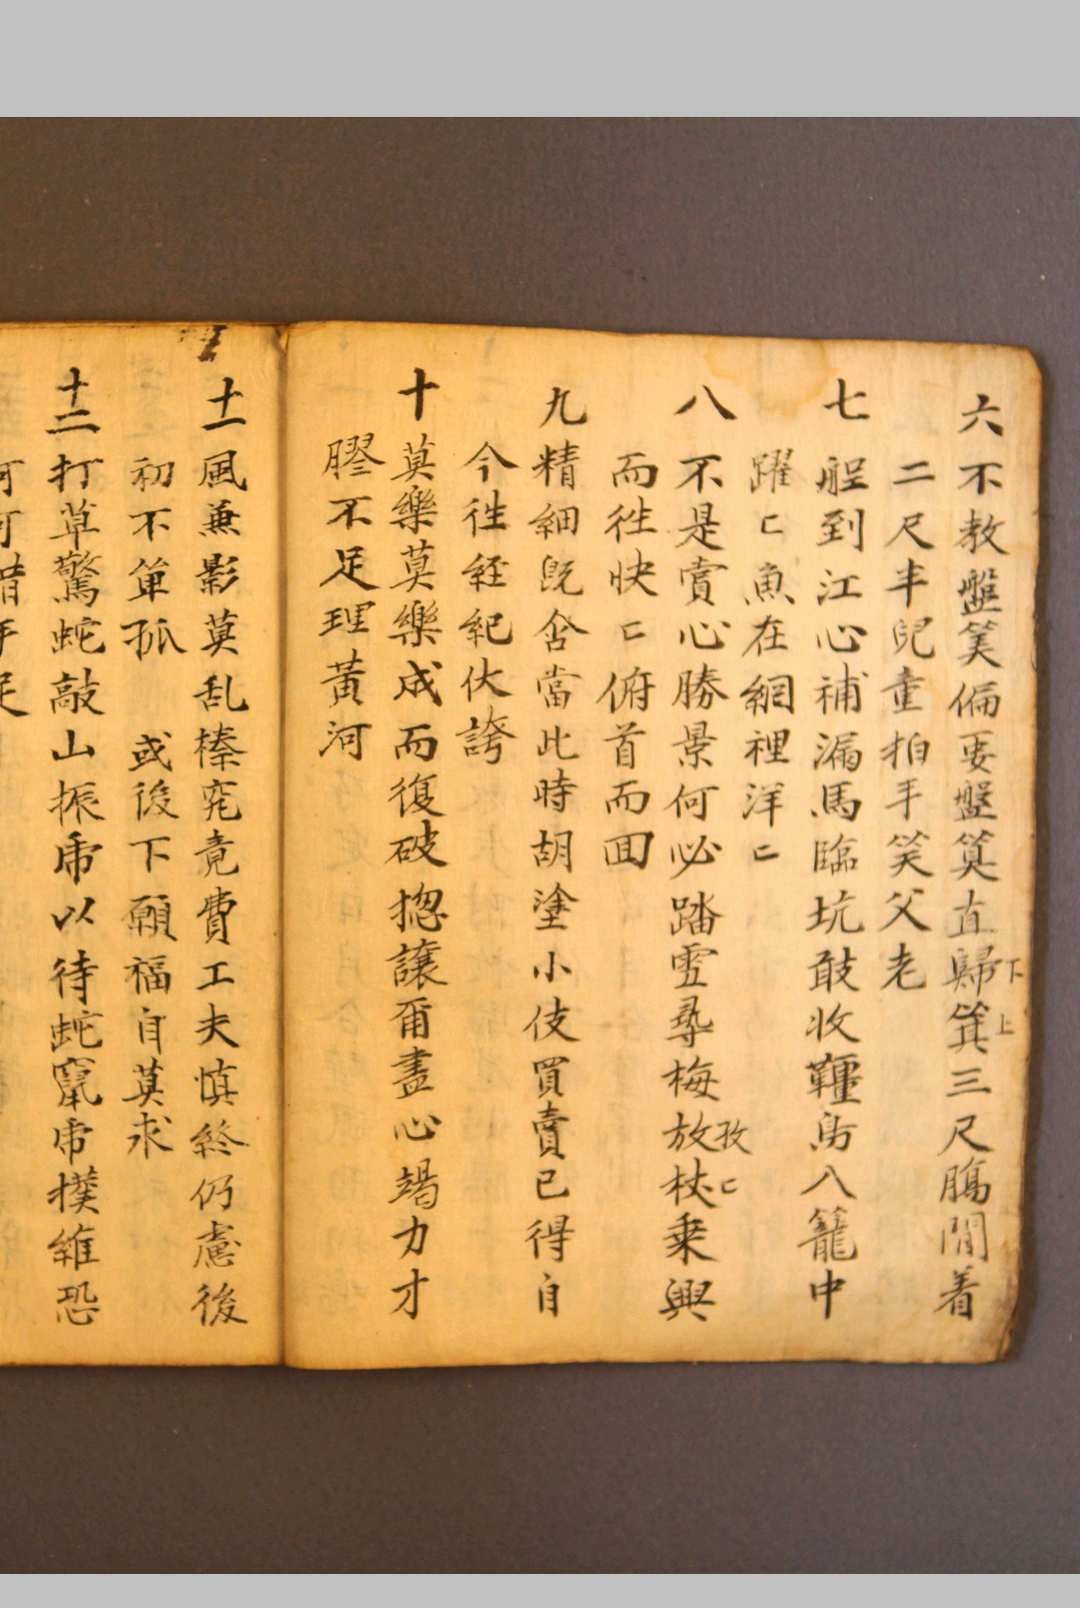 六 不教盤筭偏要盤筭直歸箕三尺腸閒着
下
上
二尺半兒童拍手笑父老
七 舡到江心補漏馬臨坑敢收韁鳥入籠中
躍〻魚在網裡洋〻
八 不是賞心勝景何必踏雪尋梅放杖乘興
孜〻
而徃快〻俯首而囬
九 精細既含當此時胡塗小伎買賣已得自
今徃経紀伏誇
十 莫樂莫樂成而復破揔讓爾盡心竭力才
膠不足理黃河
十一 風兼影莫乱榛究竟費工夫慎終仍慮後
初不算孤 或後下願福自莫求
十二 打草驚蛇敲山振虎以待蛇竄虎撲維恐